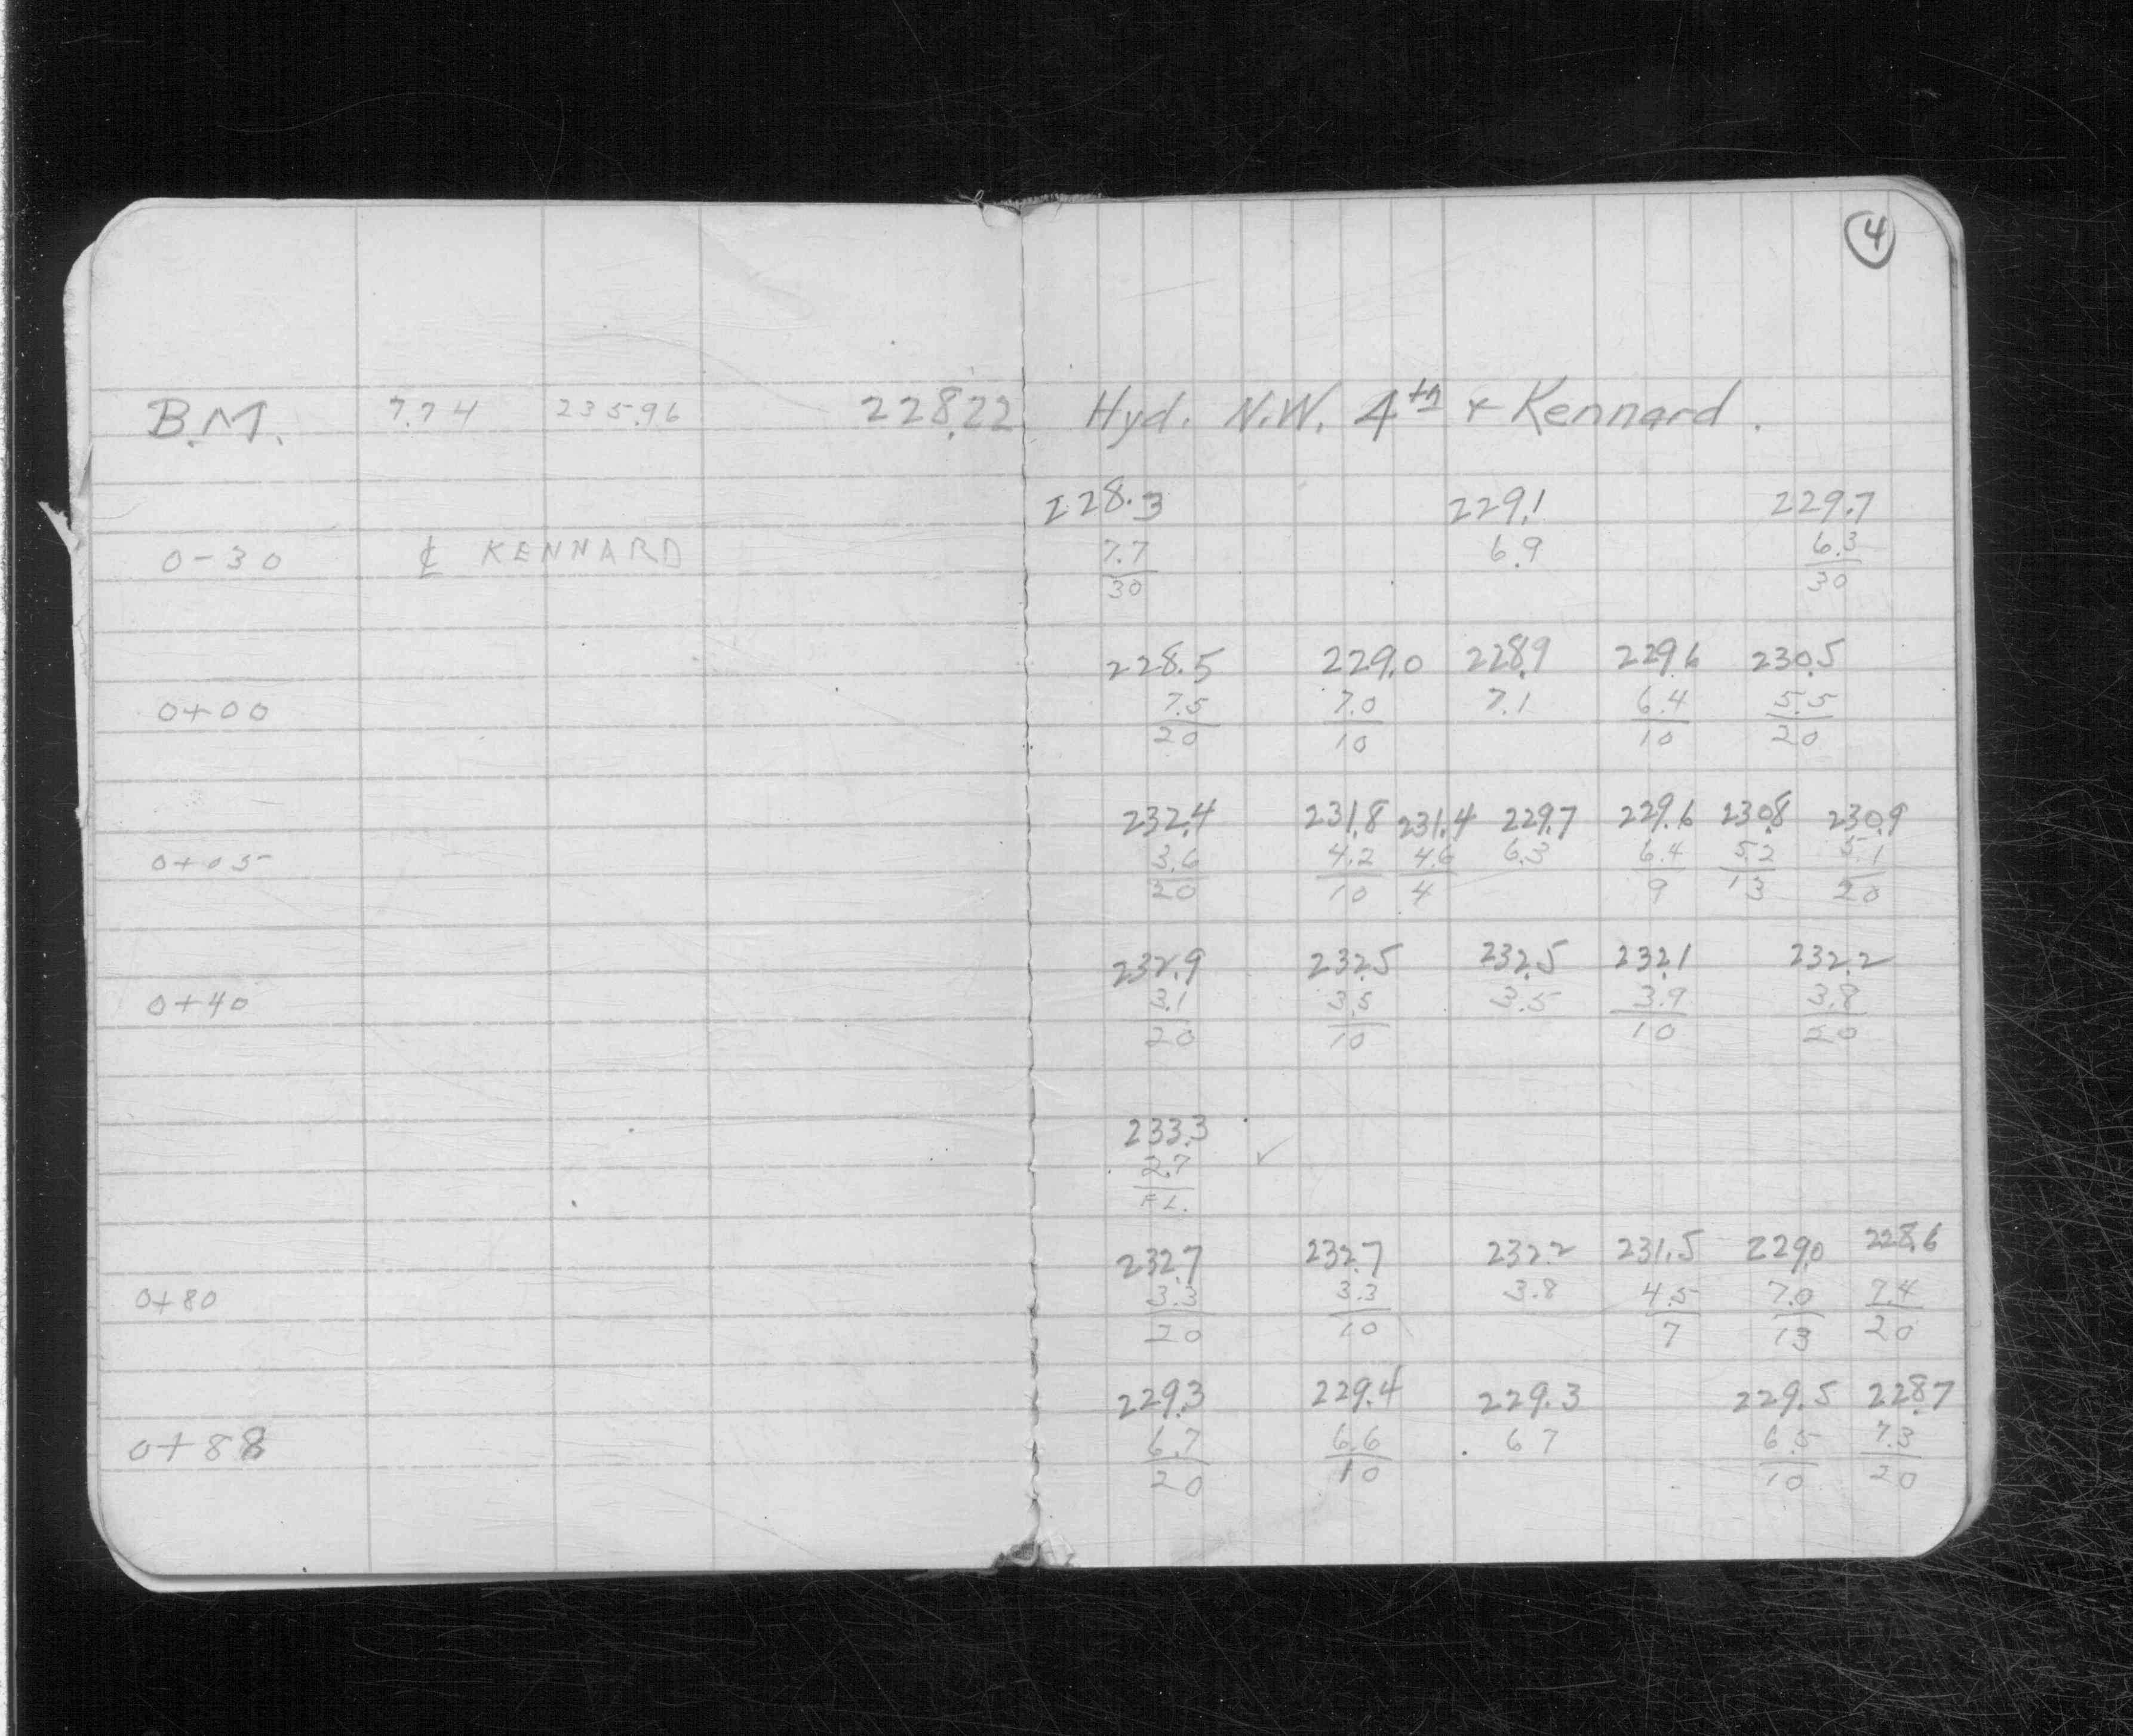 4
B.M. 7.74 235.96 228.22 Hyd. N.W. 4th + Kennard.
228.3 229.1 229.7
0-30 ℄ KENNARD 7.7 6.9 6.3
30 30
228.5 229.0 228.9 229.6 230.5
0+00 7.5 7.0 7.1 6.4 5.5
20 10 10 20
232.4 231.8 231.4 229.7 229.6 230.8 230.9
0+05 3.6 4.2 4.6 6.3 6.4 5.2 5.1
20 10 4 9 13 20
232.9 232.5 232.5 232.1 232.2
0+40 3.1 3.5 3.5 3.9 3.8
20 10 10 20
233.3
2.7 ✓
FL.
232.7 232.7 232.2 231.5 229.0 228.6
0+80 3.3 3.3 3.8 4.5 7.0 7.4
20 10 7 13 20
229.3 229.4 229.3 229.5 228.7
0+88 6.7 6.6 67 6.5 7.3
20 10 10 20